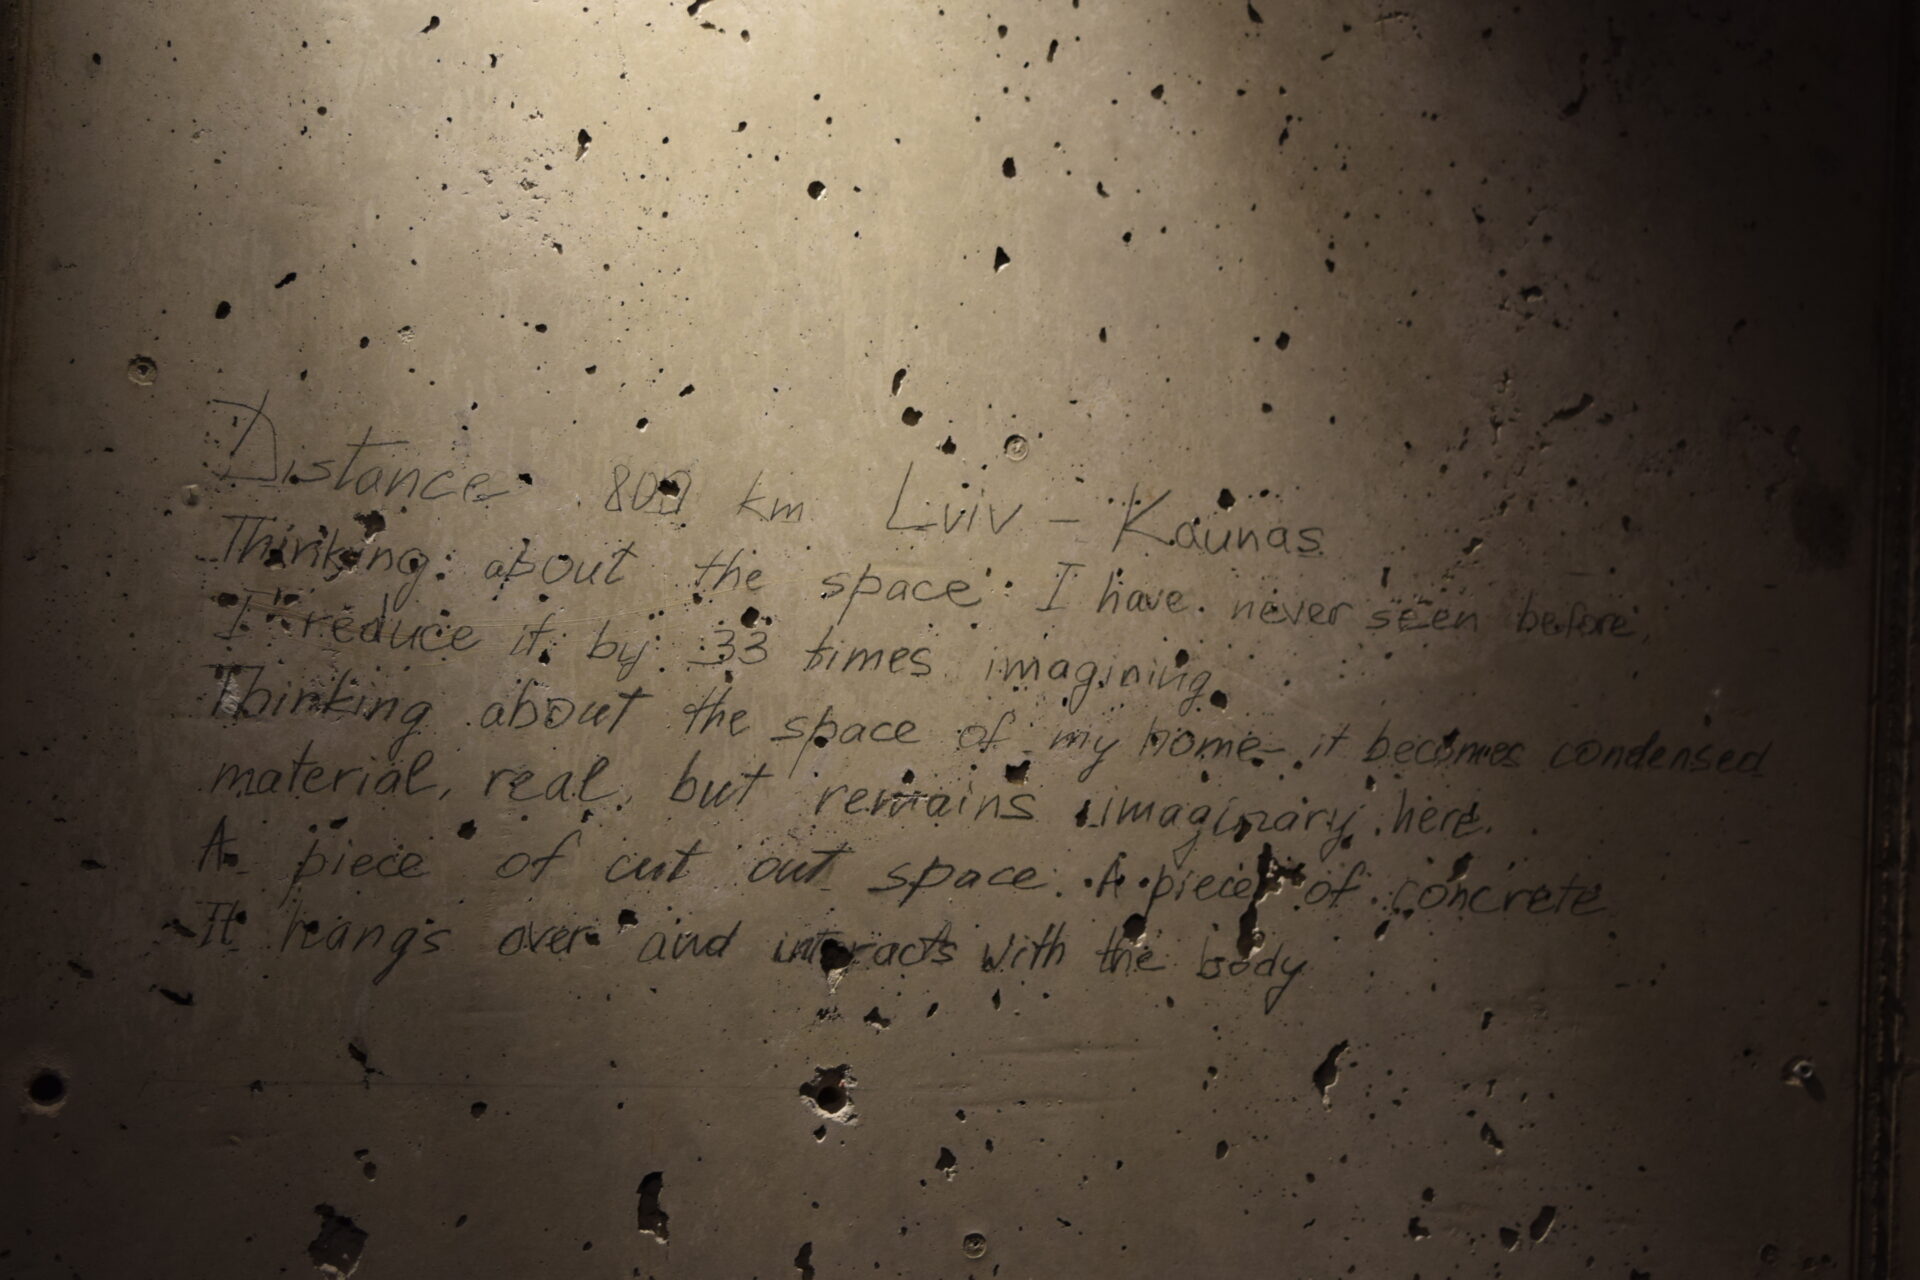 Distance 800 km Lviv - Kaunas
Thinking about the space I have never seen before,
I reduce it by 33 times imagining
Thinking about the space of my home - it becomes condensed
material, real, but remains imaginary here.
A piece of cut out space. A piece of concrete
It hangs over and interacts with the body